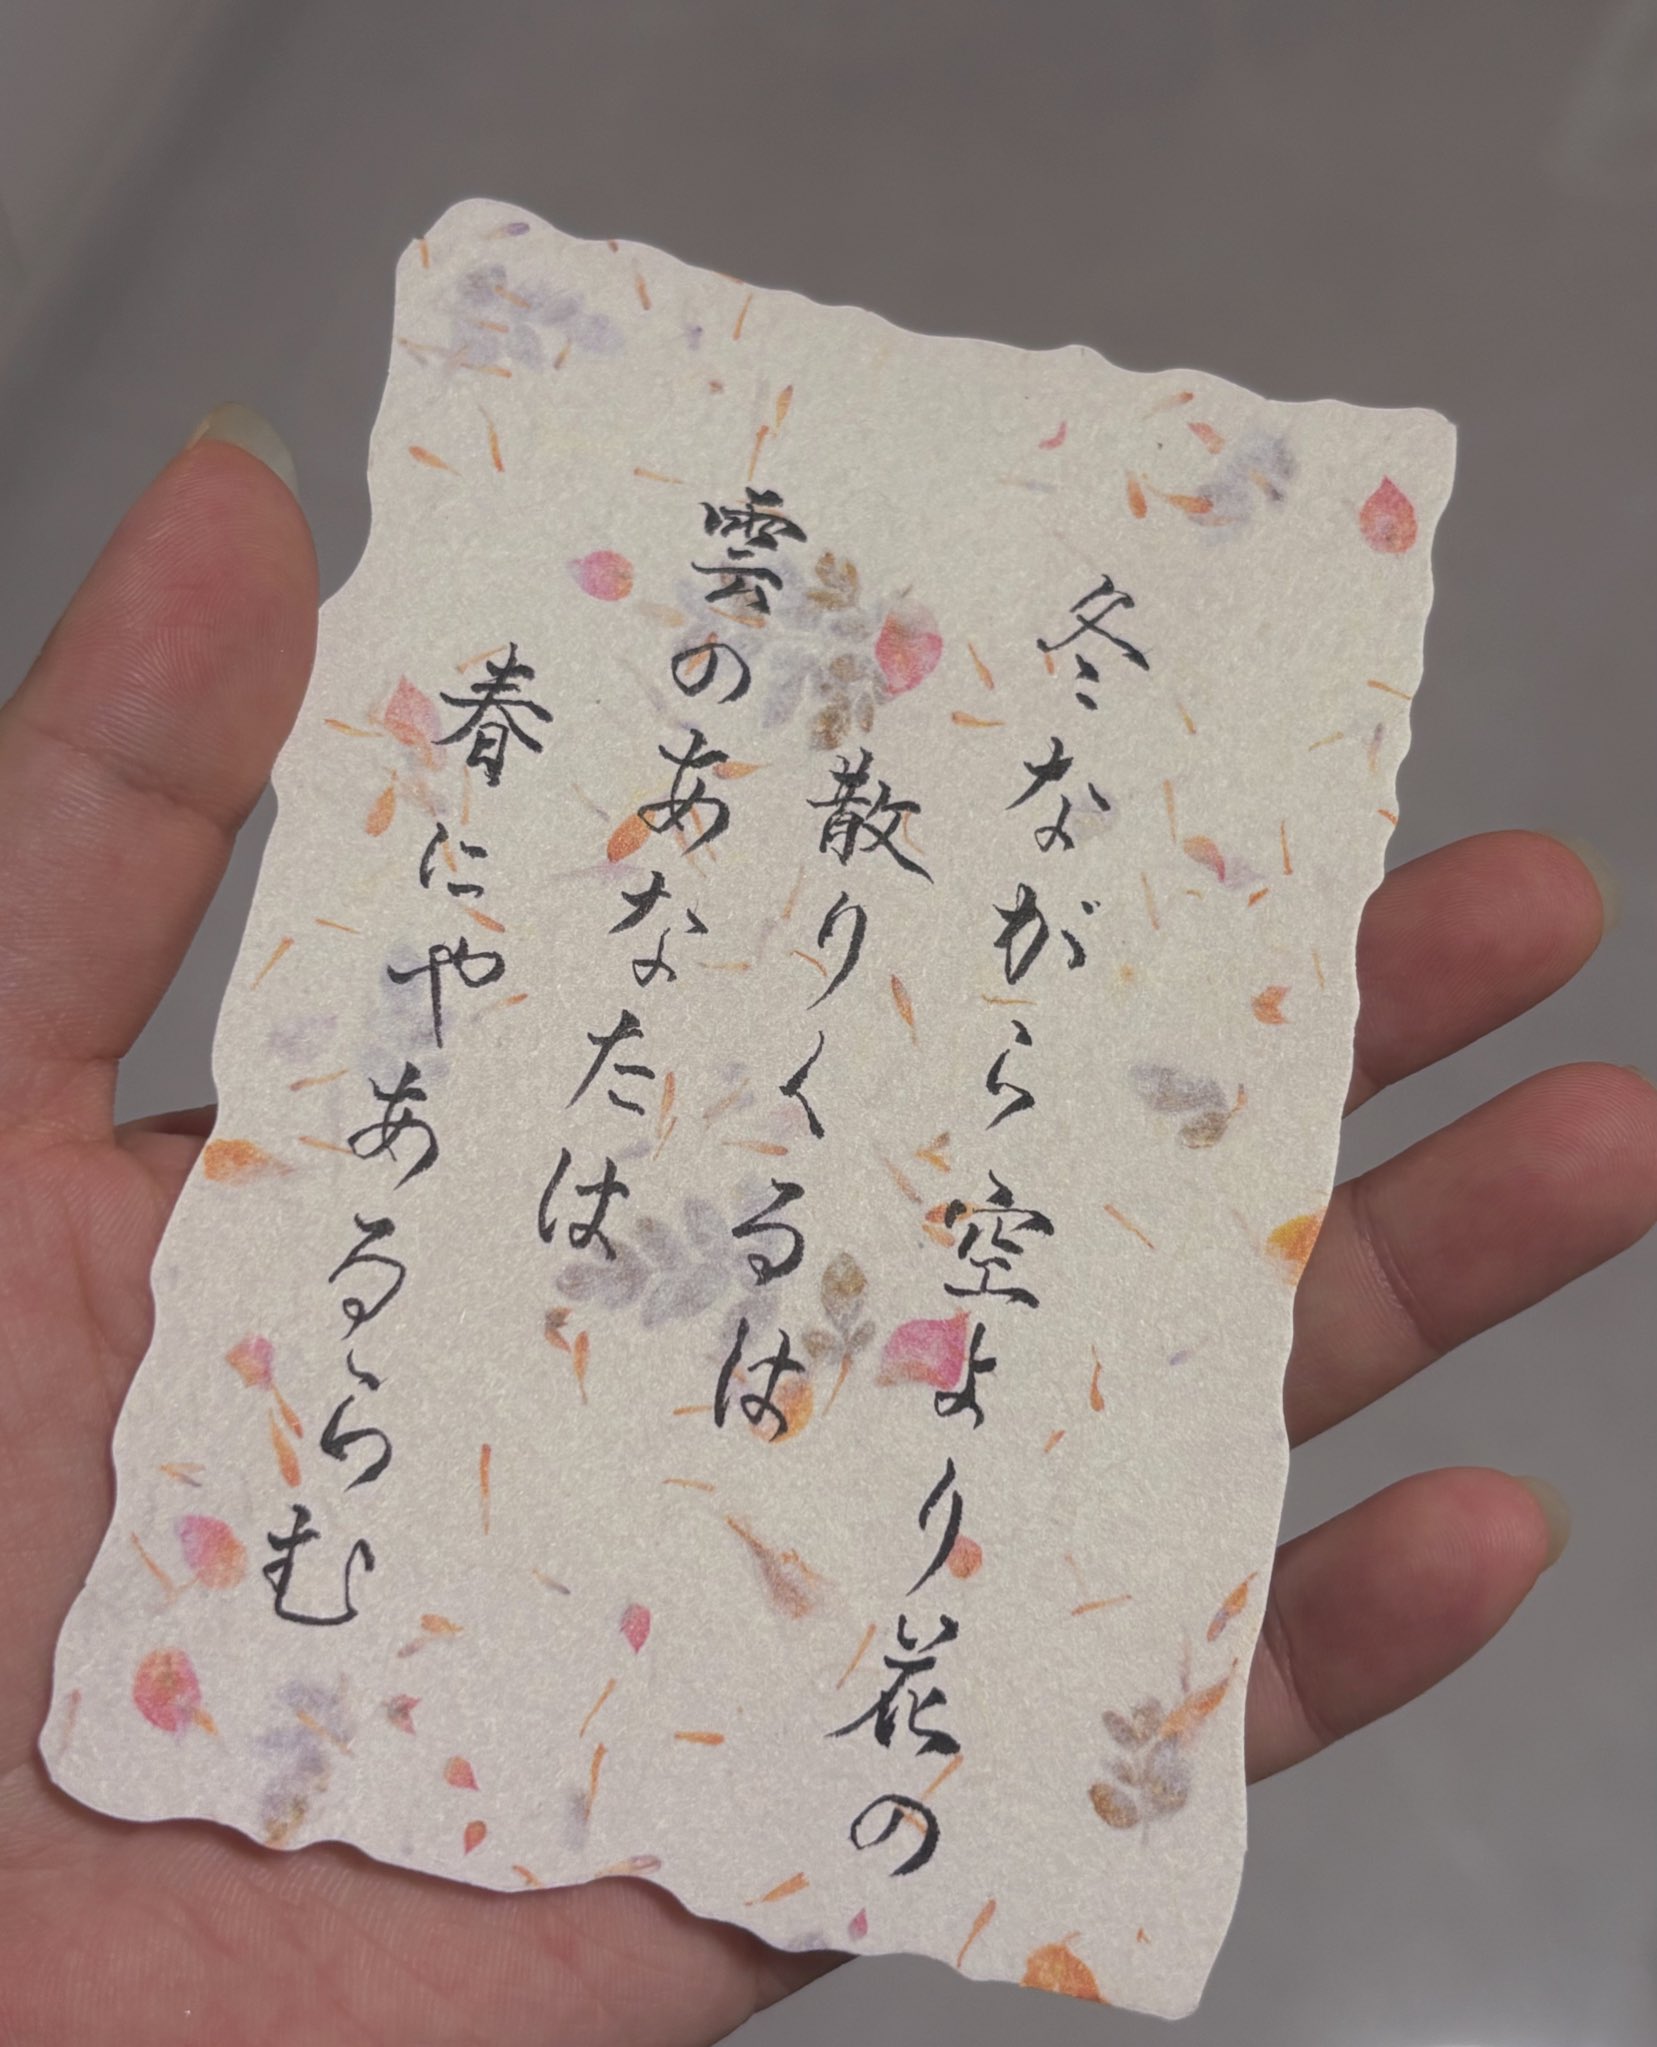 冬ながら空より花の
散りくるは
雲のあなたは
春にやあるらむ